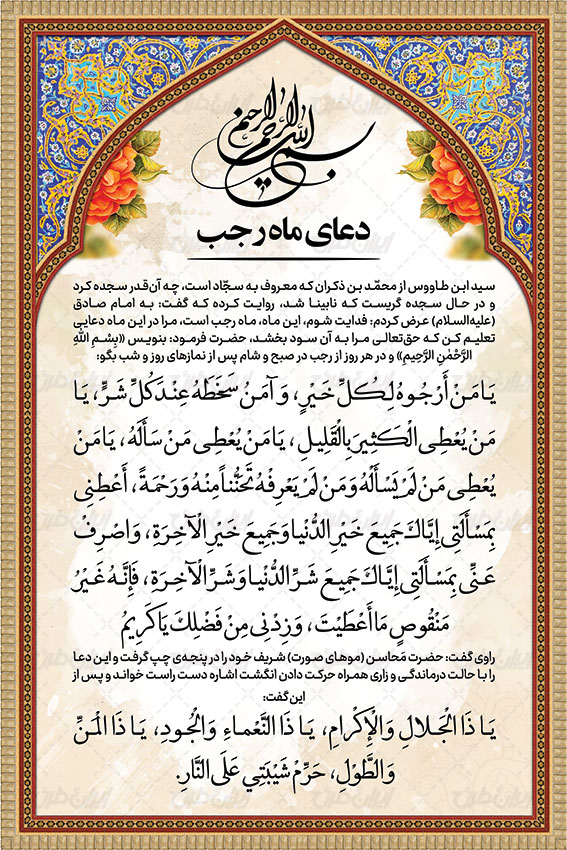 بسم الله الرحمن الرحیم
دعای ماه رجب
سید ابن طاووس از محمّد بن ذکران که معروف به سجّاد است، چه آن‌قدر سجده کرد
و در حال سجده گریست که نابینا شد، روایت کرده که گفت: به امام صادق
(علیه‌السلام) عرض کردم: فدایت شوم، این ماه، ماه رجب است، مرا در این ماه دعایی
تعلیم کن که حق‌تعالی مرا به آن سود بخشد، حضرت فرمود: بنویس «بِسْمِ اللّٰهِ
الرَّحْمٰنِ الرَّحِیمِ» و در هر روز از رجب در صبح و شام پس از نمازهای روز و شب بگو:
یَا مَنْ أَرْجُوهُ لِکُلِّ خَیْرٍ، وَ آمَنُ سَخَطَهُ عِنْدَ کُلِّ شَرٍّ، یَا
مَنْ یُعْطِی الْکَثِیرَ بِالْقَلِیلِ، یَا مَنْ یُعْطِی مَنْ سَأَلَهُ، یَا مَنْ
یُعْطِی مَنْ لَمْ یَسْأَلْهُ وَ مَنْ لَمْ یَعْرِفْهُ تَحَنُّناً مِنْهُ وَ رَحْمَةً، أَعْطِنِی
بِمَسْأَلَتِی إِیَّاکَ جَمِیعَ خَیْرِ الدُّنْیَا وَ جَمِیعَ خَیْرِ الْآخِرَةِ، وَ اصْرِفْ
عَنِّی بِمَسْأَلَتِی إِیَّاکَ جَمِیعَ شَرِّ الدُّنْیَا وَ شَرِّ الْآخِرَةِ، فَإِنَّهُ غَیْرُ
مَنْقُوصٍ مَا أَعْطَیْتَ، وَ زِدْنِی مِنْ فَضْلِکَ یَا کَرِیمُ
راوی گفت: حضرت مَحاسن (موهای صورت) شریف خود را در پنجه‌ی چپ گرفت و این دعا
را با حالت درماندگی و زاری همراه حرکت دادن انگشت اشاره دست راست خواند و پس از
این گفت:
یَا ذَا الْجَلَالِ وَ الْإِکْرَامِ، یَا ذَا النَّعْمَاءِ وَ الْجُودِ، یَا ذَا الْمَنِّ
وَ الطَّوْلِ، حَرِّمْ شَیْبَتِی عَلَی النَّارِ.